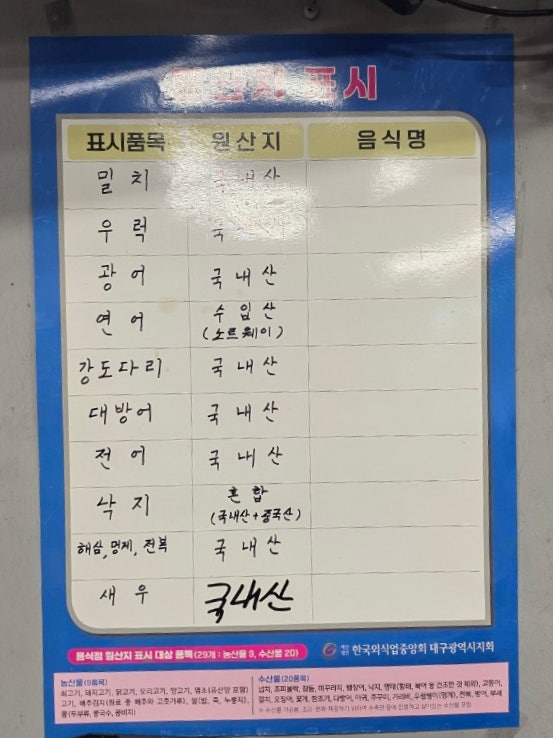 원산지 표시
표시품목 원산지 음식명
밀치 국내산
우럭 국
광어 국내산
연어 수입산
(노르웨이)
강도다리 국내산
대방어 국내산
전어 국내산
낙지 혼합
(국내산+중국산)
해삼, 멍게, 전복 국내산
새우 국내산
음식점 원산지 표시 대상 품목(29개 : 농산물 9, 수산물 20)
한국외식업중앙회 대구광역시지회
농산물(9품목)
쇠고기, 돼지고기, 닭고기, 오리고기, 양고기, 염소(유산양 포함)
고기, 배추김치(원료 중 배추와 고춧가루), 쌀(밥, 죽, 누룽지),
콩(두부류, 콩국수, 콩비지)
수산물(20품목)
넙치, 조피볼락, 참돔, 미꾸라지, 뱀장어, 낙지, 명태(황태, 북어 등 건조한 것 제외), 고등어,
갈치, 오징어, 꽃게, 참조기, 다랑어, 아귀, 주꾸미, 가리비, 우렁쉥이(멍게), 전복, 방어, 부세